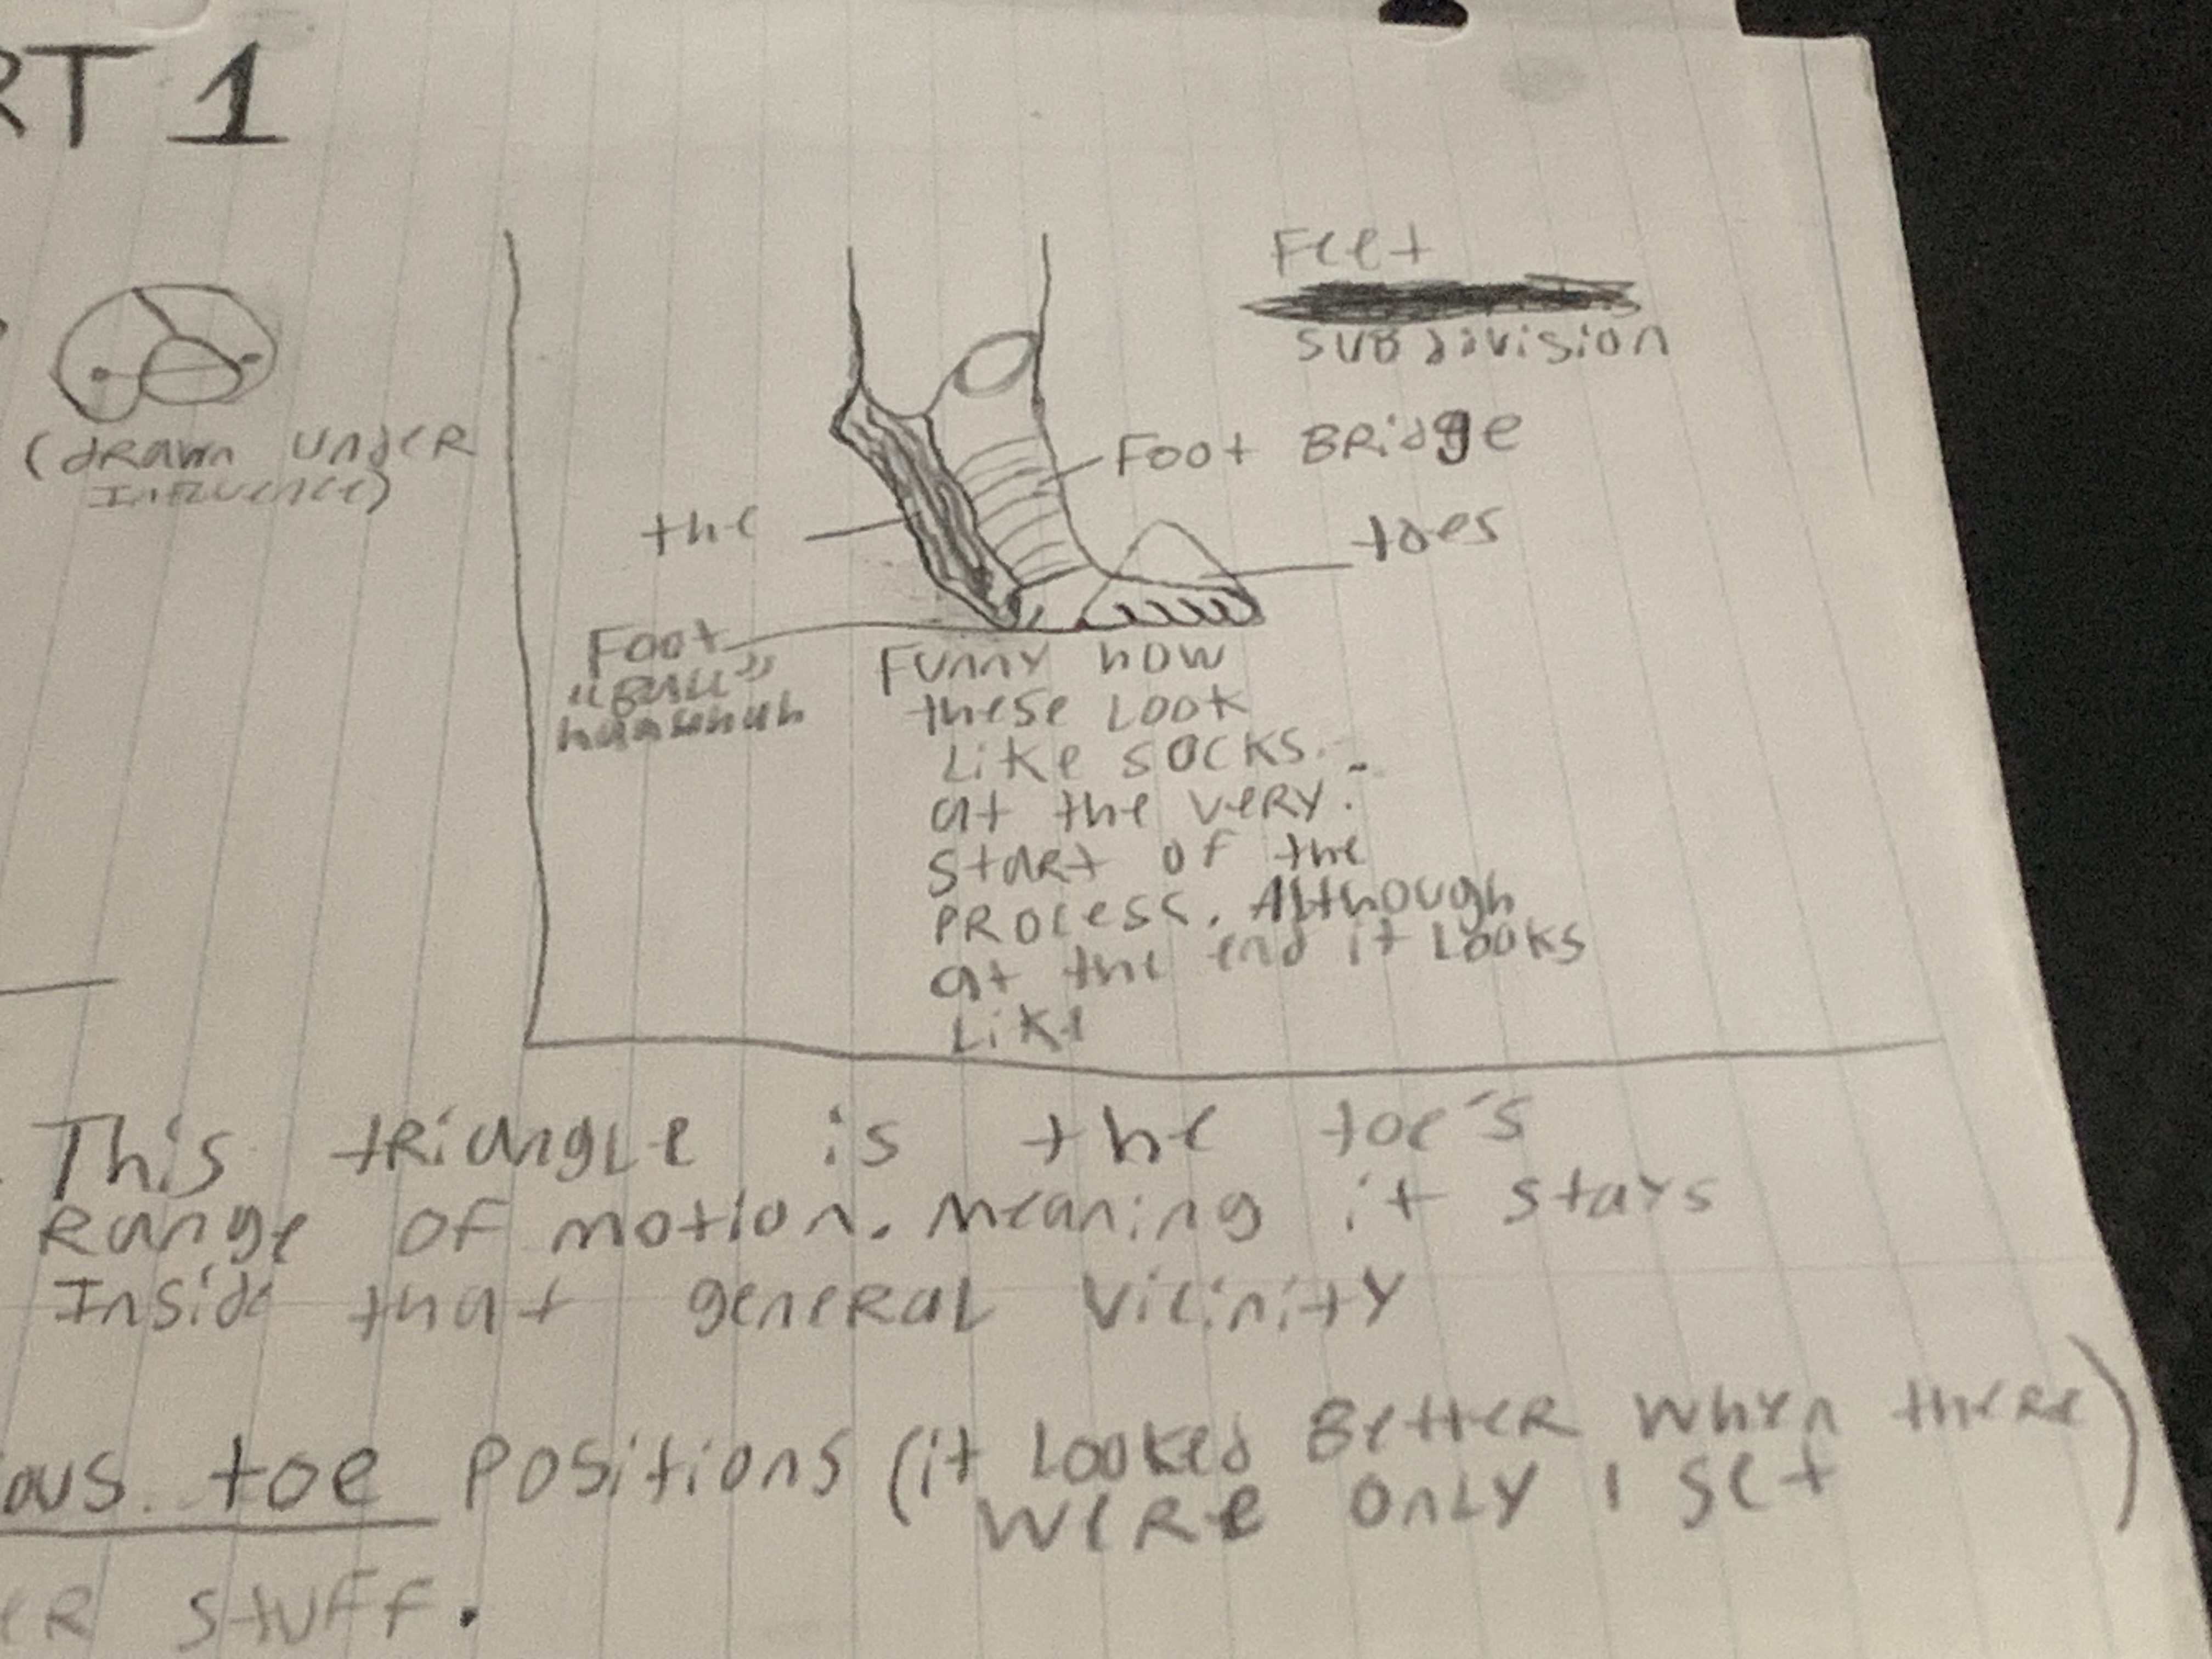 RT 1
Feet
subdivision
Foot Bridge
(drawn under
Influence)
the
toes
Foot
"Ball"
Funny how
these look
like socks.
at the very.
start of the
process. Although
at the end it looks
like
This triangle is the toe's
Range of motion. meaning it stays
Inside that general vicinity
ous toe positions (it looked Better when there
were only 1 set)
er stuff.